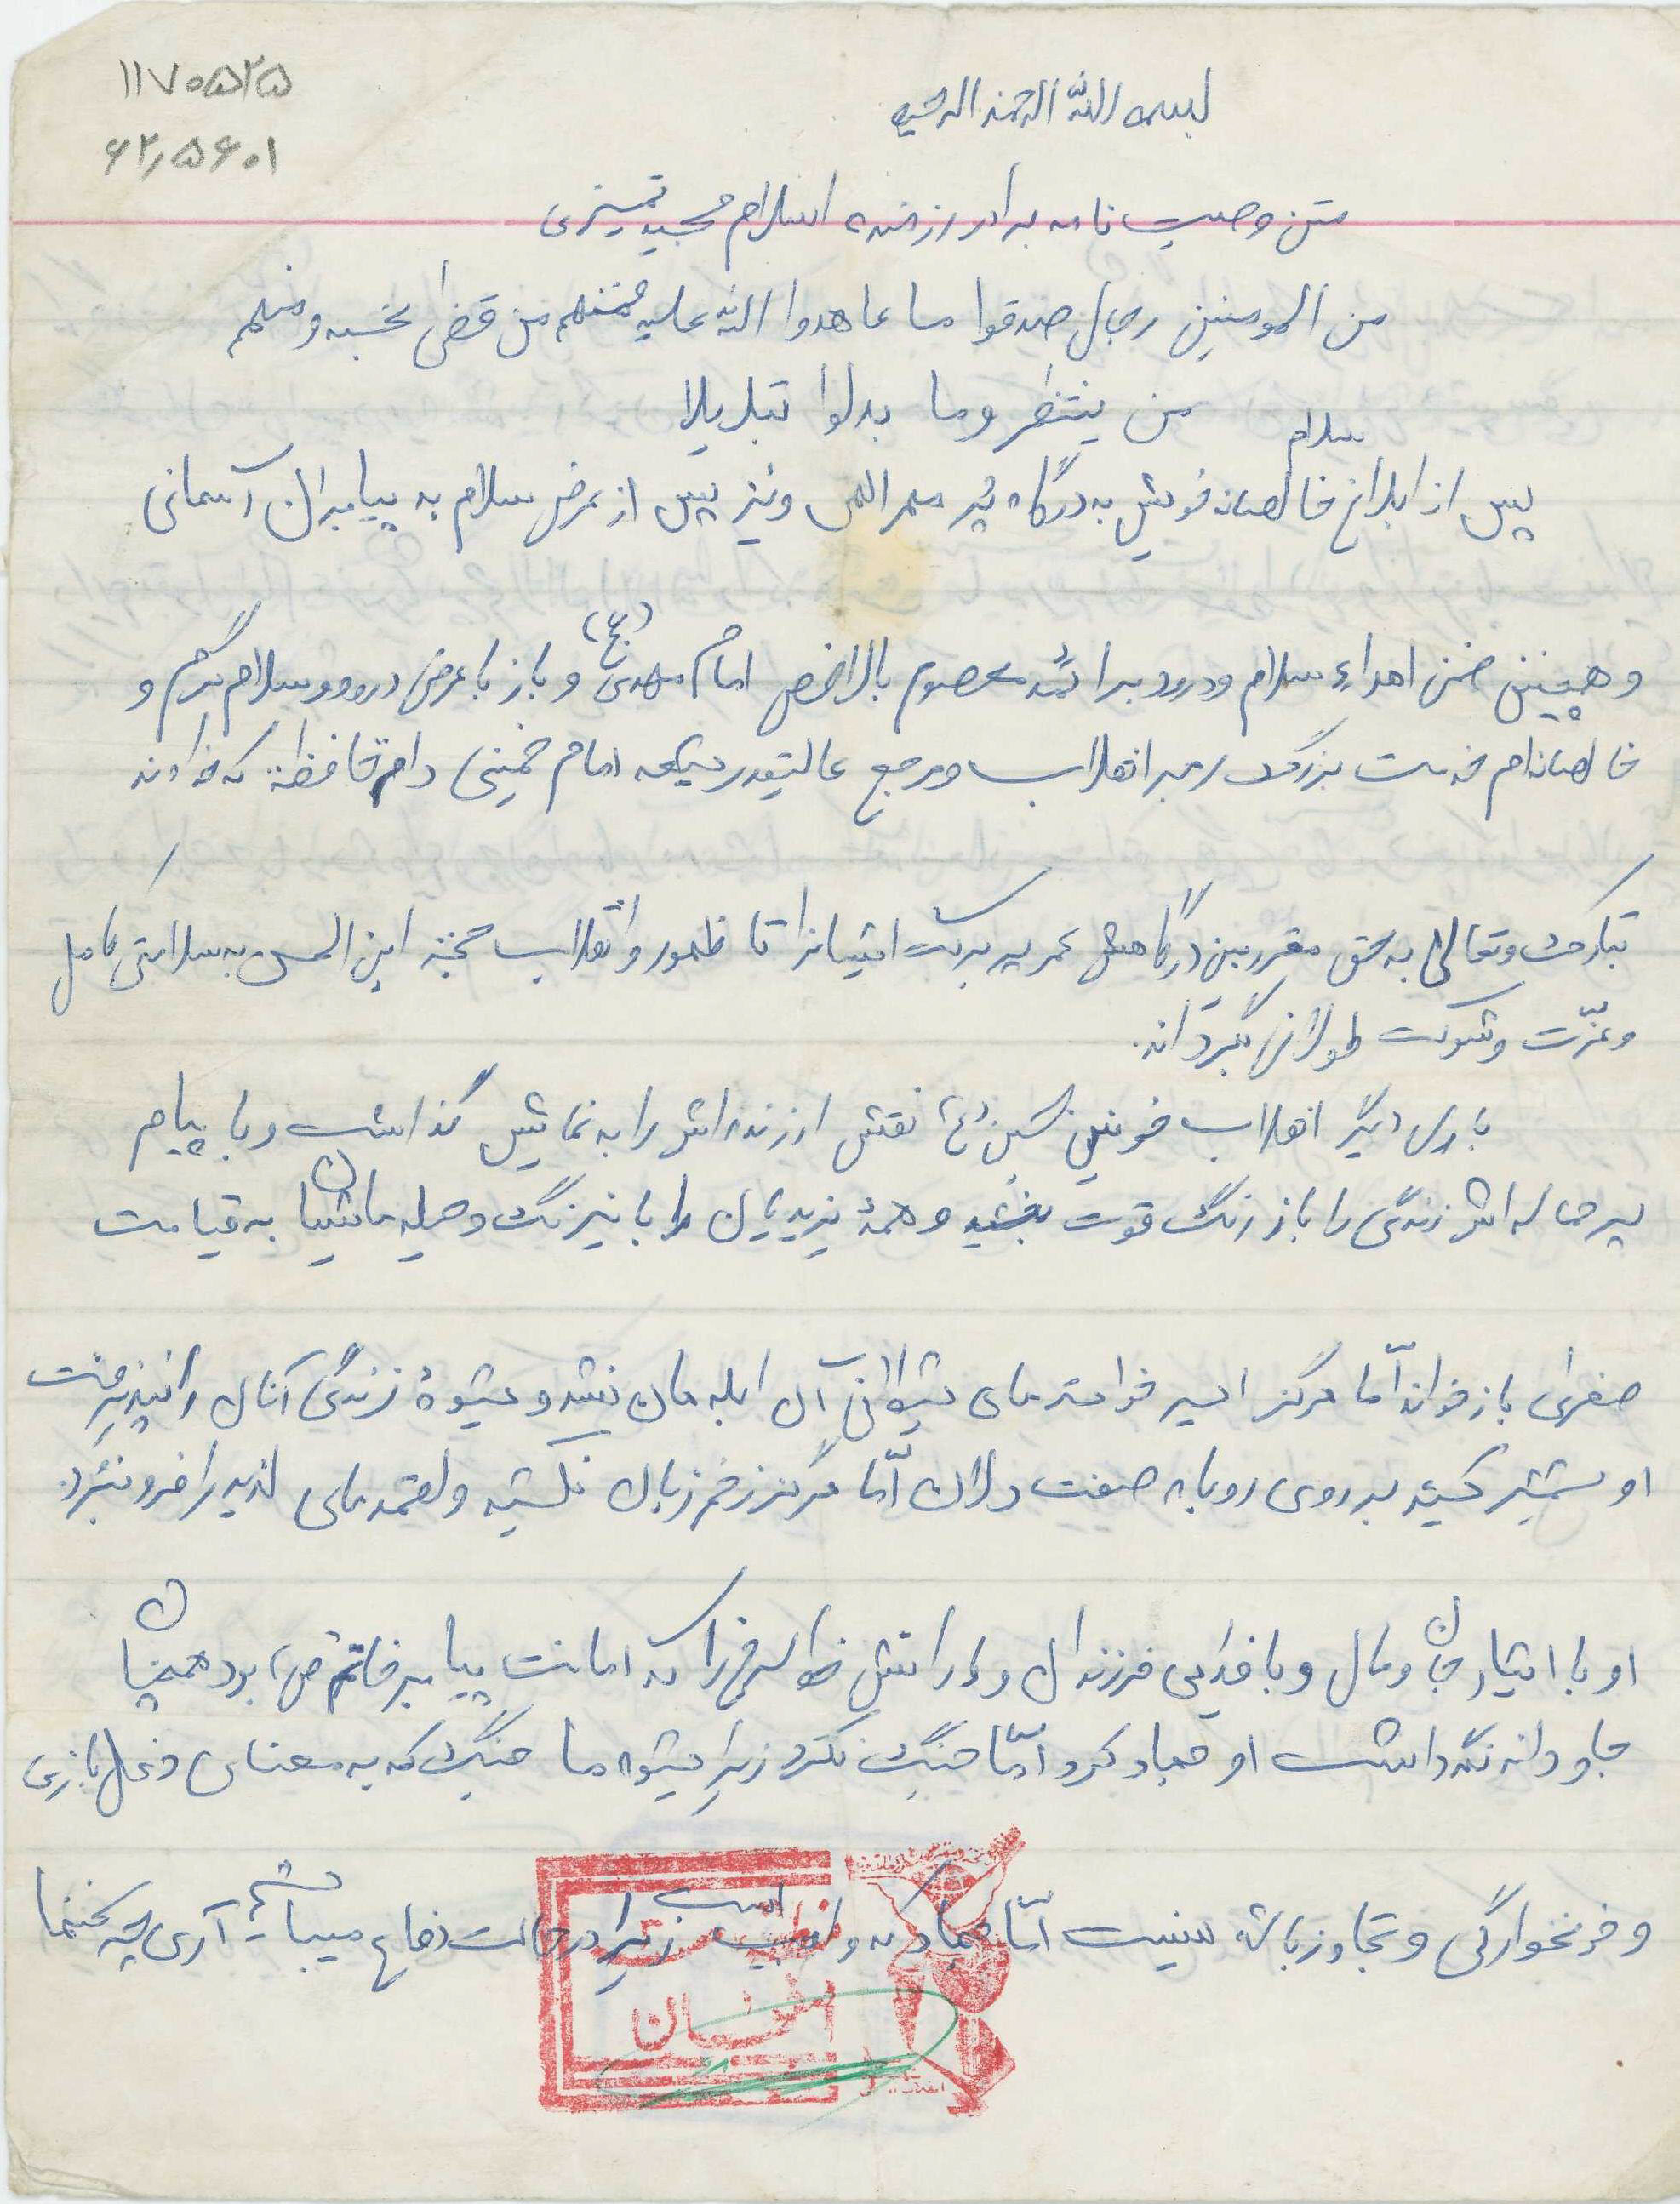 ۱۱۷۰۵۲۵
۶۲٫۵۶۰۱
بسم الله الرحمن الرحیم
متن وصیت نامه برادر رزمنده اسلام مجید تمیزی
من المومنین رجال صدقوا ما عاهدوا الله علیه فمنهم من قضی نحبه و منهم
من ینتظر وما بدلوا تبدیلا
پس از ابلاغ سلام خالصانه خویش به درگاه پر مهر الهی و نیز پس از عرض سلام به پیامبران آسمانی
و همچنین ضمن اهداء سلام و درود بر ائمه معصوم بالاخص امام مهدی (عج) و باز با عرض درود و سلام گرم و
خالصانه ام خدمت بزرگ رهبر انقلاب و مرجع عالیقدر شیعه امام خمینی دام که خداوند
تبارک و تعالی به حق مقربین درگاهش عمر پر برکت ایشانرا تا ظهور و انقلاب حجة ابن الحسن به سلامتی کامل
و عزّت و شوکت طولانی بگرداند.
باری دیگر انقلاب خونین حسین (ع) نقش ارزنده اش را به نمایش گذاشت و با پیام
پر حماسه اش زندگی را باز رنگ قوت بخشید و همهٔ یزیدیان را با نیرنگ و حیله هایشان به قیامت
صغری باز خواند امّا هرگز اسیر خواسته های شهوانی آن ابلهان نشد و شیوهٔ زندگی آنان را نپذیرفت
او شمشیر کشید بر روی روباه صفت دلان امّا هرگز زخم زبان نکشید و لقمه های لذیذ را فرو نبرد.
او با ایثار جان و مال و با فدایی فرزندان و یارانش خط سرخی را که امانت پیامبر خاتم (ص) بود همچنان
جاودانه نگه داشت او جهاد کرد امّا جنگ نکرد زیرا شیوه ما جنگ که به معنای دغل بازی
و خونخوارگی و تجاوز باشد نیست امّا جهاد که واجب است زیرا در حالت دفاع میباشیم آری چه